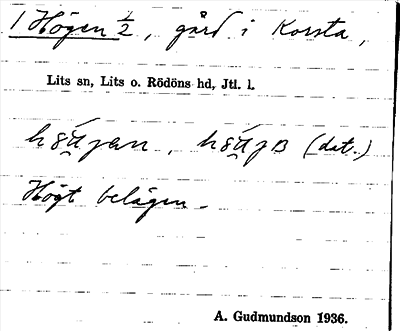 1 Högen 1/2, gård i Korsta,
Lits sn, Lits o. Rödöns hd, Jtl. l.
(dat.)
Högt belägen.
A. Gudmundson 1936.